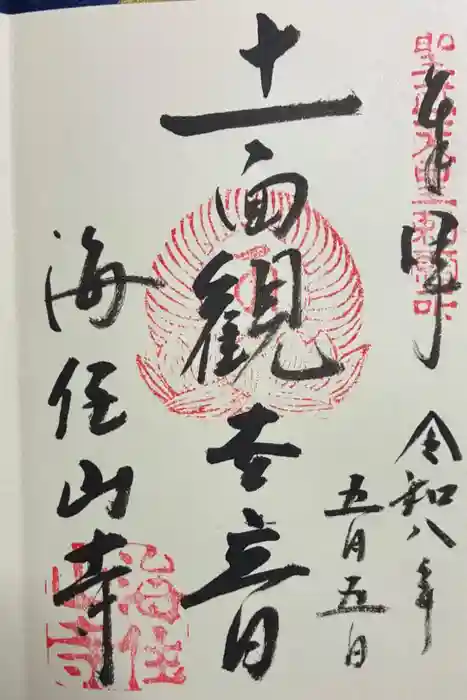 奉拝
令和八年
五月五日
十一面観世音
海住山寺
海住
山寺